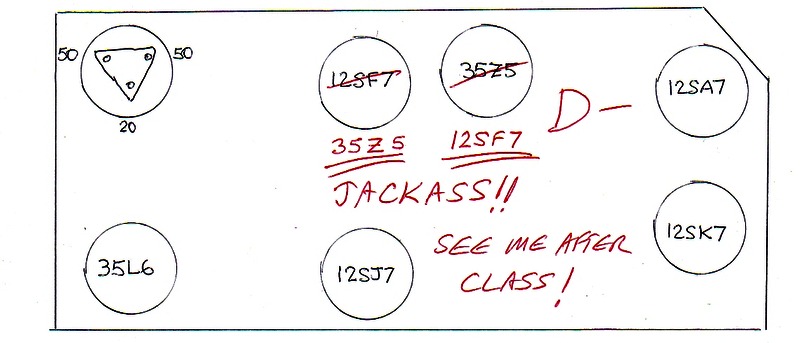 50 50
20
12SF7
35Z5
35Z5
12SF7
D-
JACKASS!!
12SA7
35L6
12SJ7
SEE ME AFTER
CLASS!
12SK7